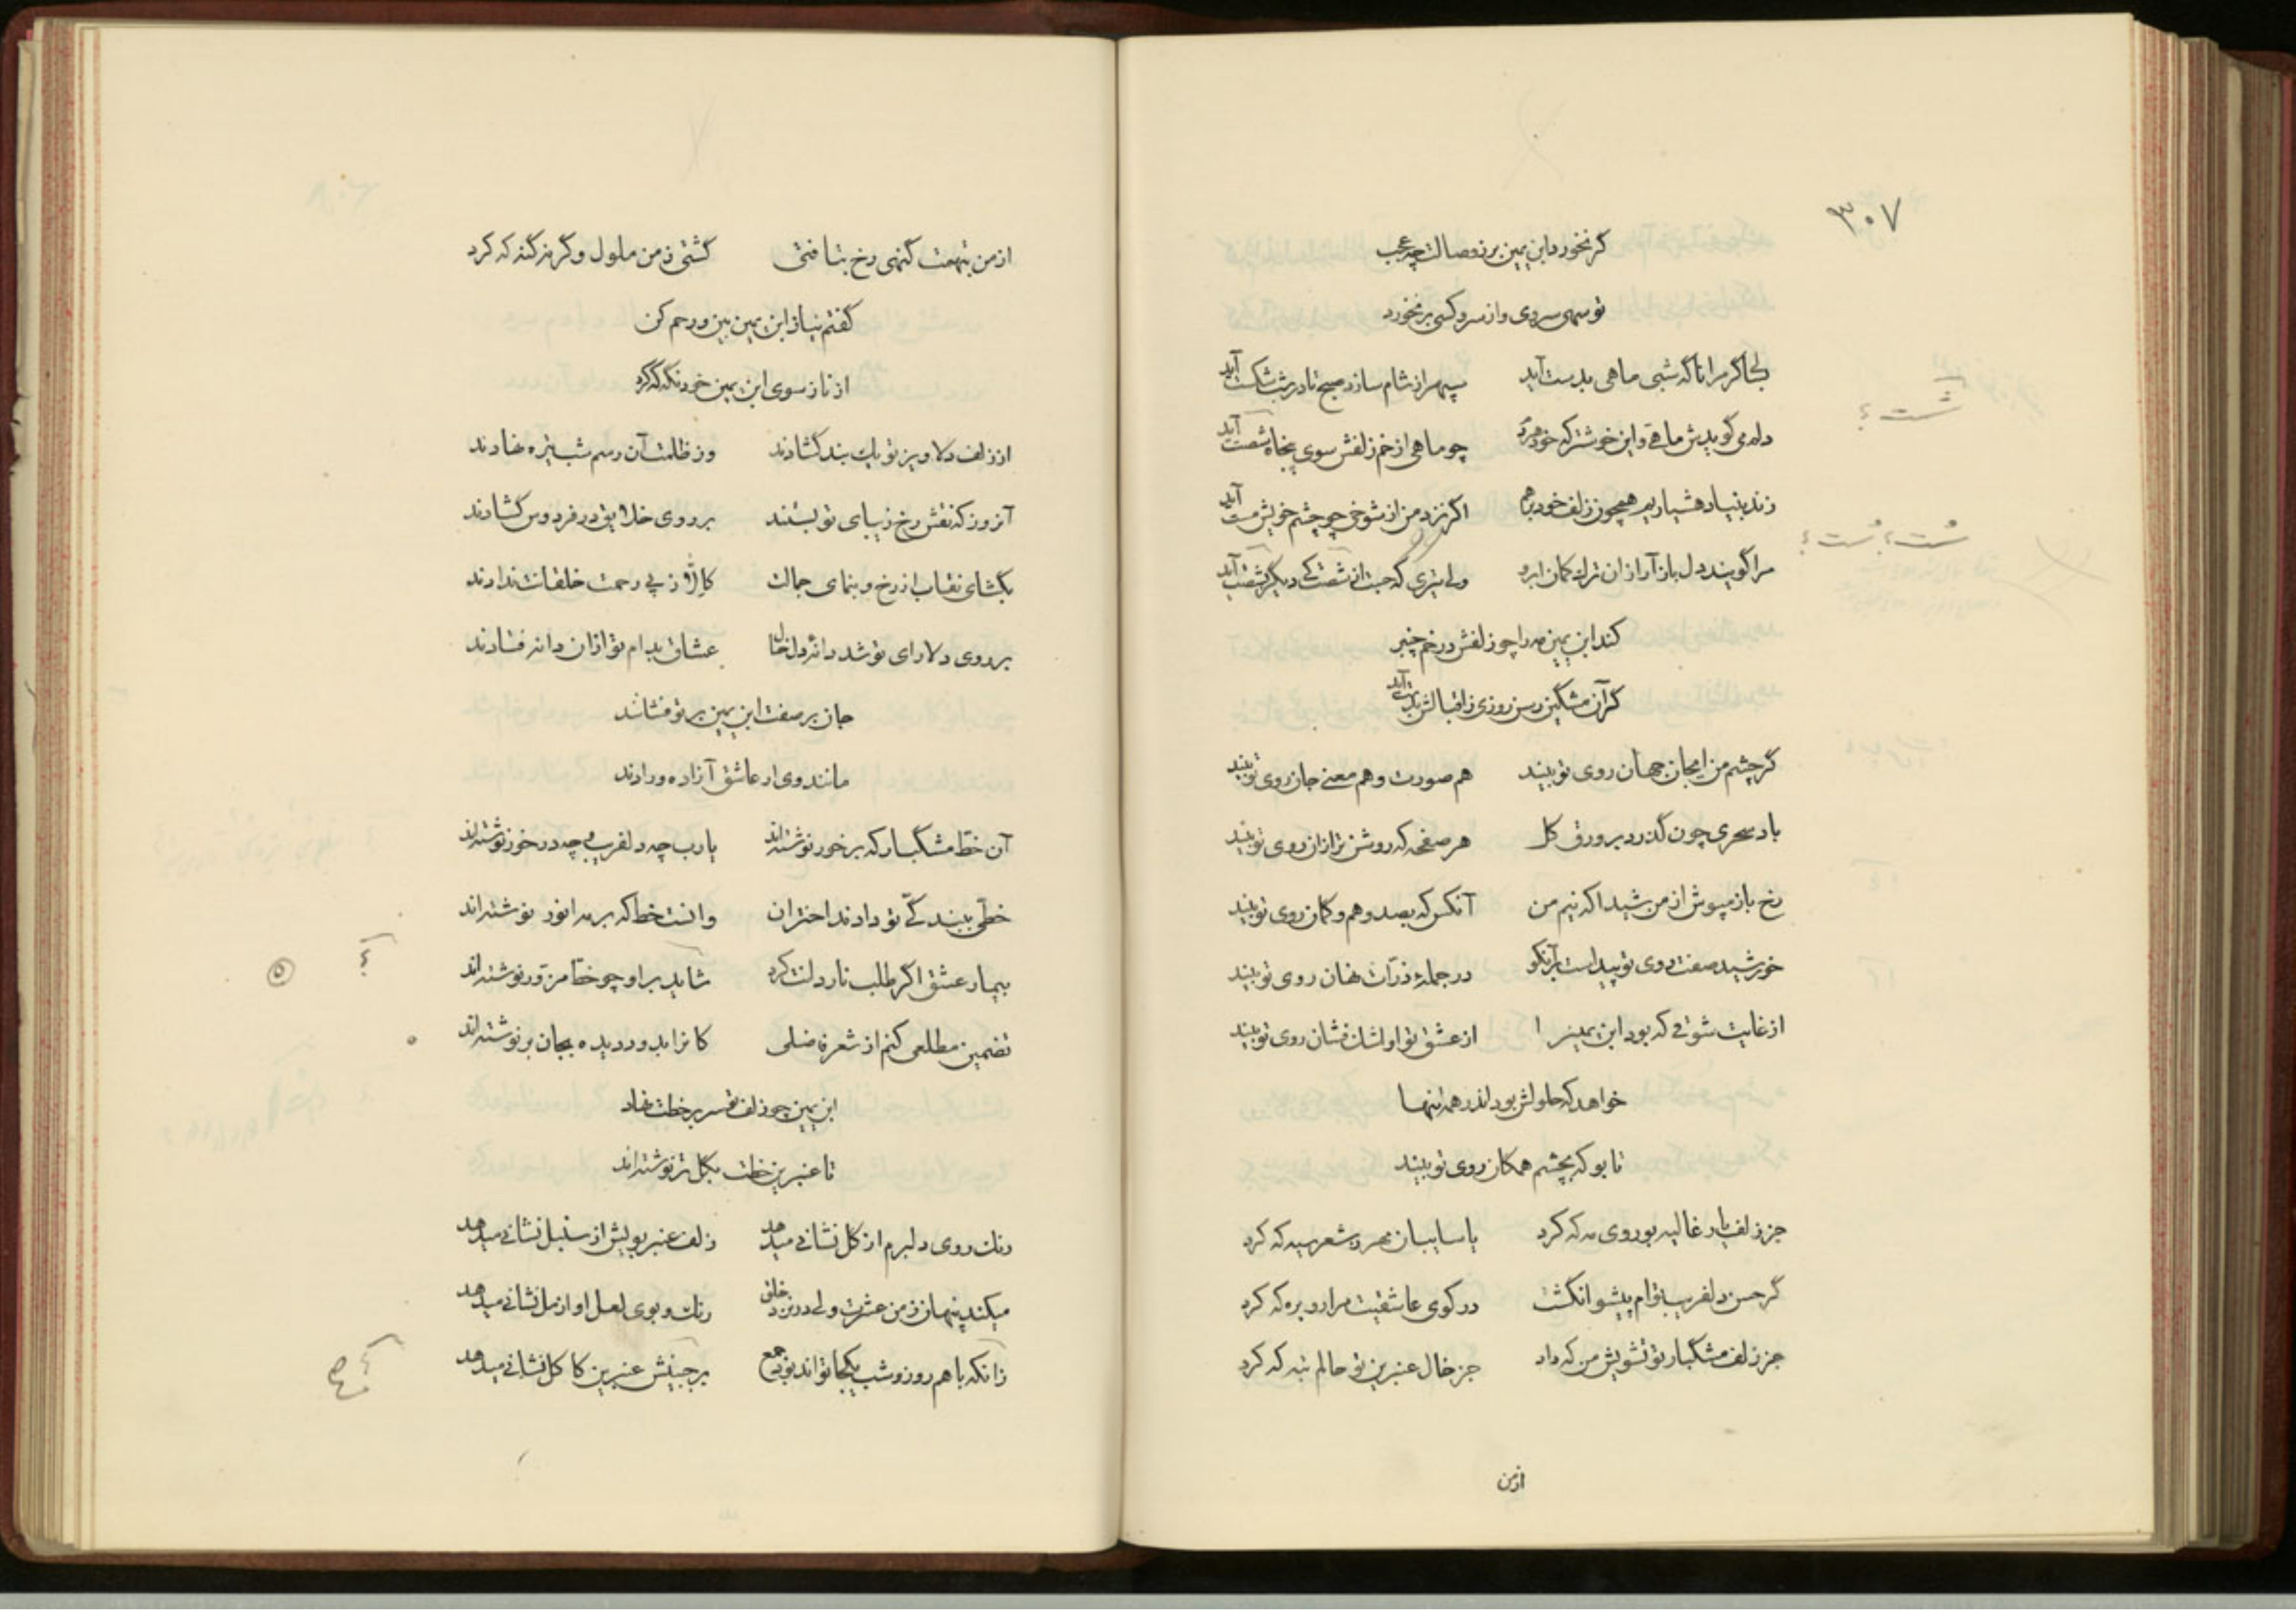 ۳۰۷
گر نخورد ابن یمین بر ز وصالت چه عجب
تو سهی سروی و از سرو کسی بر نخورد
کجا گر مرا ناگه شبی ماهی بدست آید سپهر از شام سازد صبح تا در شب شکست آید
شست ؟
دلم می‌گوید ماهی و این خوشتر که خود هردم چو ماهی از خم زلفش سوی پنجاه شصت آید
زند بنیاد هشیاریم همچون زلف خود برهم اگر نزد من از شوخی چو چشم خویش مست آید
شست ؟ شست ؟
مرا گویند دل باز آر از ان ترک کمان ابرو ولی تیری که جست از شصت کی دیگر بشصت آید
کند ابن یمین مه را چو زلفش در خم چنبر
گر آن مشگین رسن روزی ز اقبالش بدست آید
گر چشم من ایجان جهان روی تو بیند هم صورت و هم معنی جان روی تو بیند
باد سحری چون گذرد بر ورق گل هر صفحه که روشن‌تر از ان روی تو بیند
رخ باز مپوش از من شیدا که نیم من آنکس که بصد وهم و گمان روی تو بیند
خورشید صفت روی تو پیداست بر آنکو در جملهٔ ذرات نهان روی تو بیند
از غایت شوقی که بود ابن یمین را از عشق تو او اشک فشان روی تو بیند
خواهد که حلولش بود اندر همه تنها
تا بو که بچشم همگان روی تو بیند
جز زلف یار غالیه بو روی مه که کرد یا سایبان مهر و شعر سیه که کرد
گر حسن دلفریب توام پیشوا نگشت در کوی عاشقیت مرا رو بره که کرد
جز زلف مشگبار تو تشویش من که داد جز خال عنبرین تو حالم تبه که کرد
ازمن
از من بتهمت گنهی رخ بتافتی گشتی ز من ملول و گر نه گنه که کرد
گفتم نیاز ابن یمین بین و رحم کن
از ناز سوی ابن یمین خود نگه که کرد
از زلف دلاویز تو یک بند گشادند وز ظلمت آن رسم شب تیره نهادند
آنروز که نقش رخ زیبای تو بستند بر روی خلایق در فردوس گشادند
بگشای نقاب از رخ و بنمای جمالت کاول ز پی رحمت خلقانت ندادند
بر روی دلارای تو شد دانهٔ دل خال عشاق بدام تو از ان دانه فتادند
جان بر صفت ابن یمین بر تو فشانند
مانند وی ار عاشق آزاده و رادند
آن خط مشگبار که بر خور نوشته‌اند یارب چه دلفریب و چه در خور نوشته‌اند
خطی ببندگی تو دادند اختران وانست خط که بر مه انور نوشته‌اند
بیمار عشق اگر طلب نار دلت کرد شاید بر او چو خط مزور نوشته‌اند
؟
۵
تضمین مطلعی کنم از شعر فاضلی کانرا بدو دیده بجان بر نوشته‌اند
ابن یمین چو زلف تو سر بر خطت نهاد
تا عنبرین خطت بگل تر نوشته‌اند
رنک روی دلبرم از گل نشانی میدهد زلف عنبر بویش از سنبل نشانی میدهد
میکند پنهان ز من عشرت ولی در نزد خلق رنک و بوی لعل او از مل نشانی میدهد
زانکه باهم روز و شب یکجا تواند بود جمع بر جبینش عنبرین کاکل نشانی میدهد